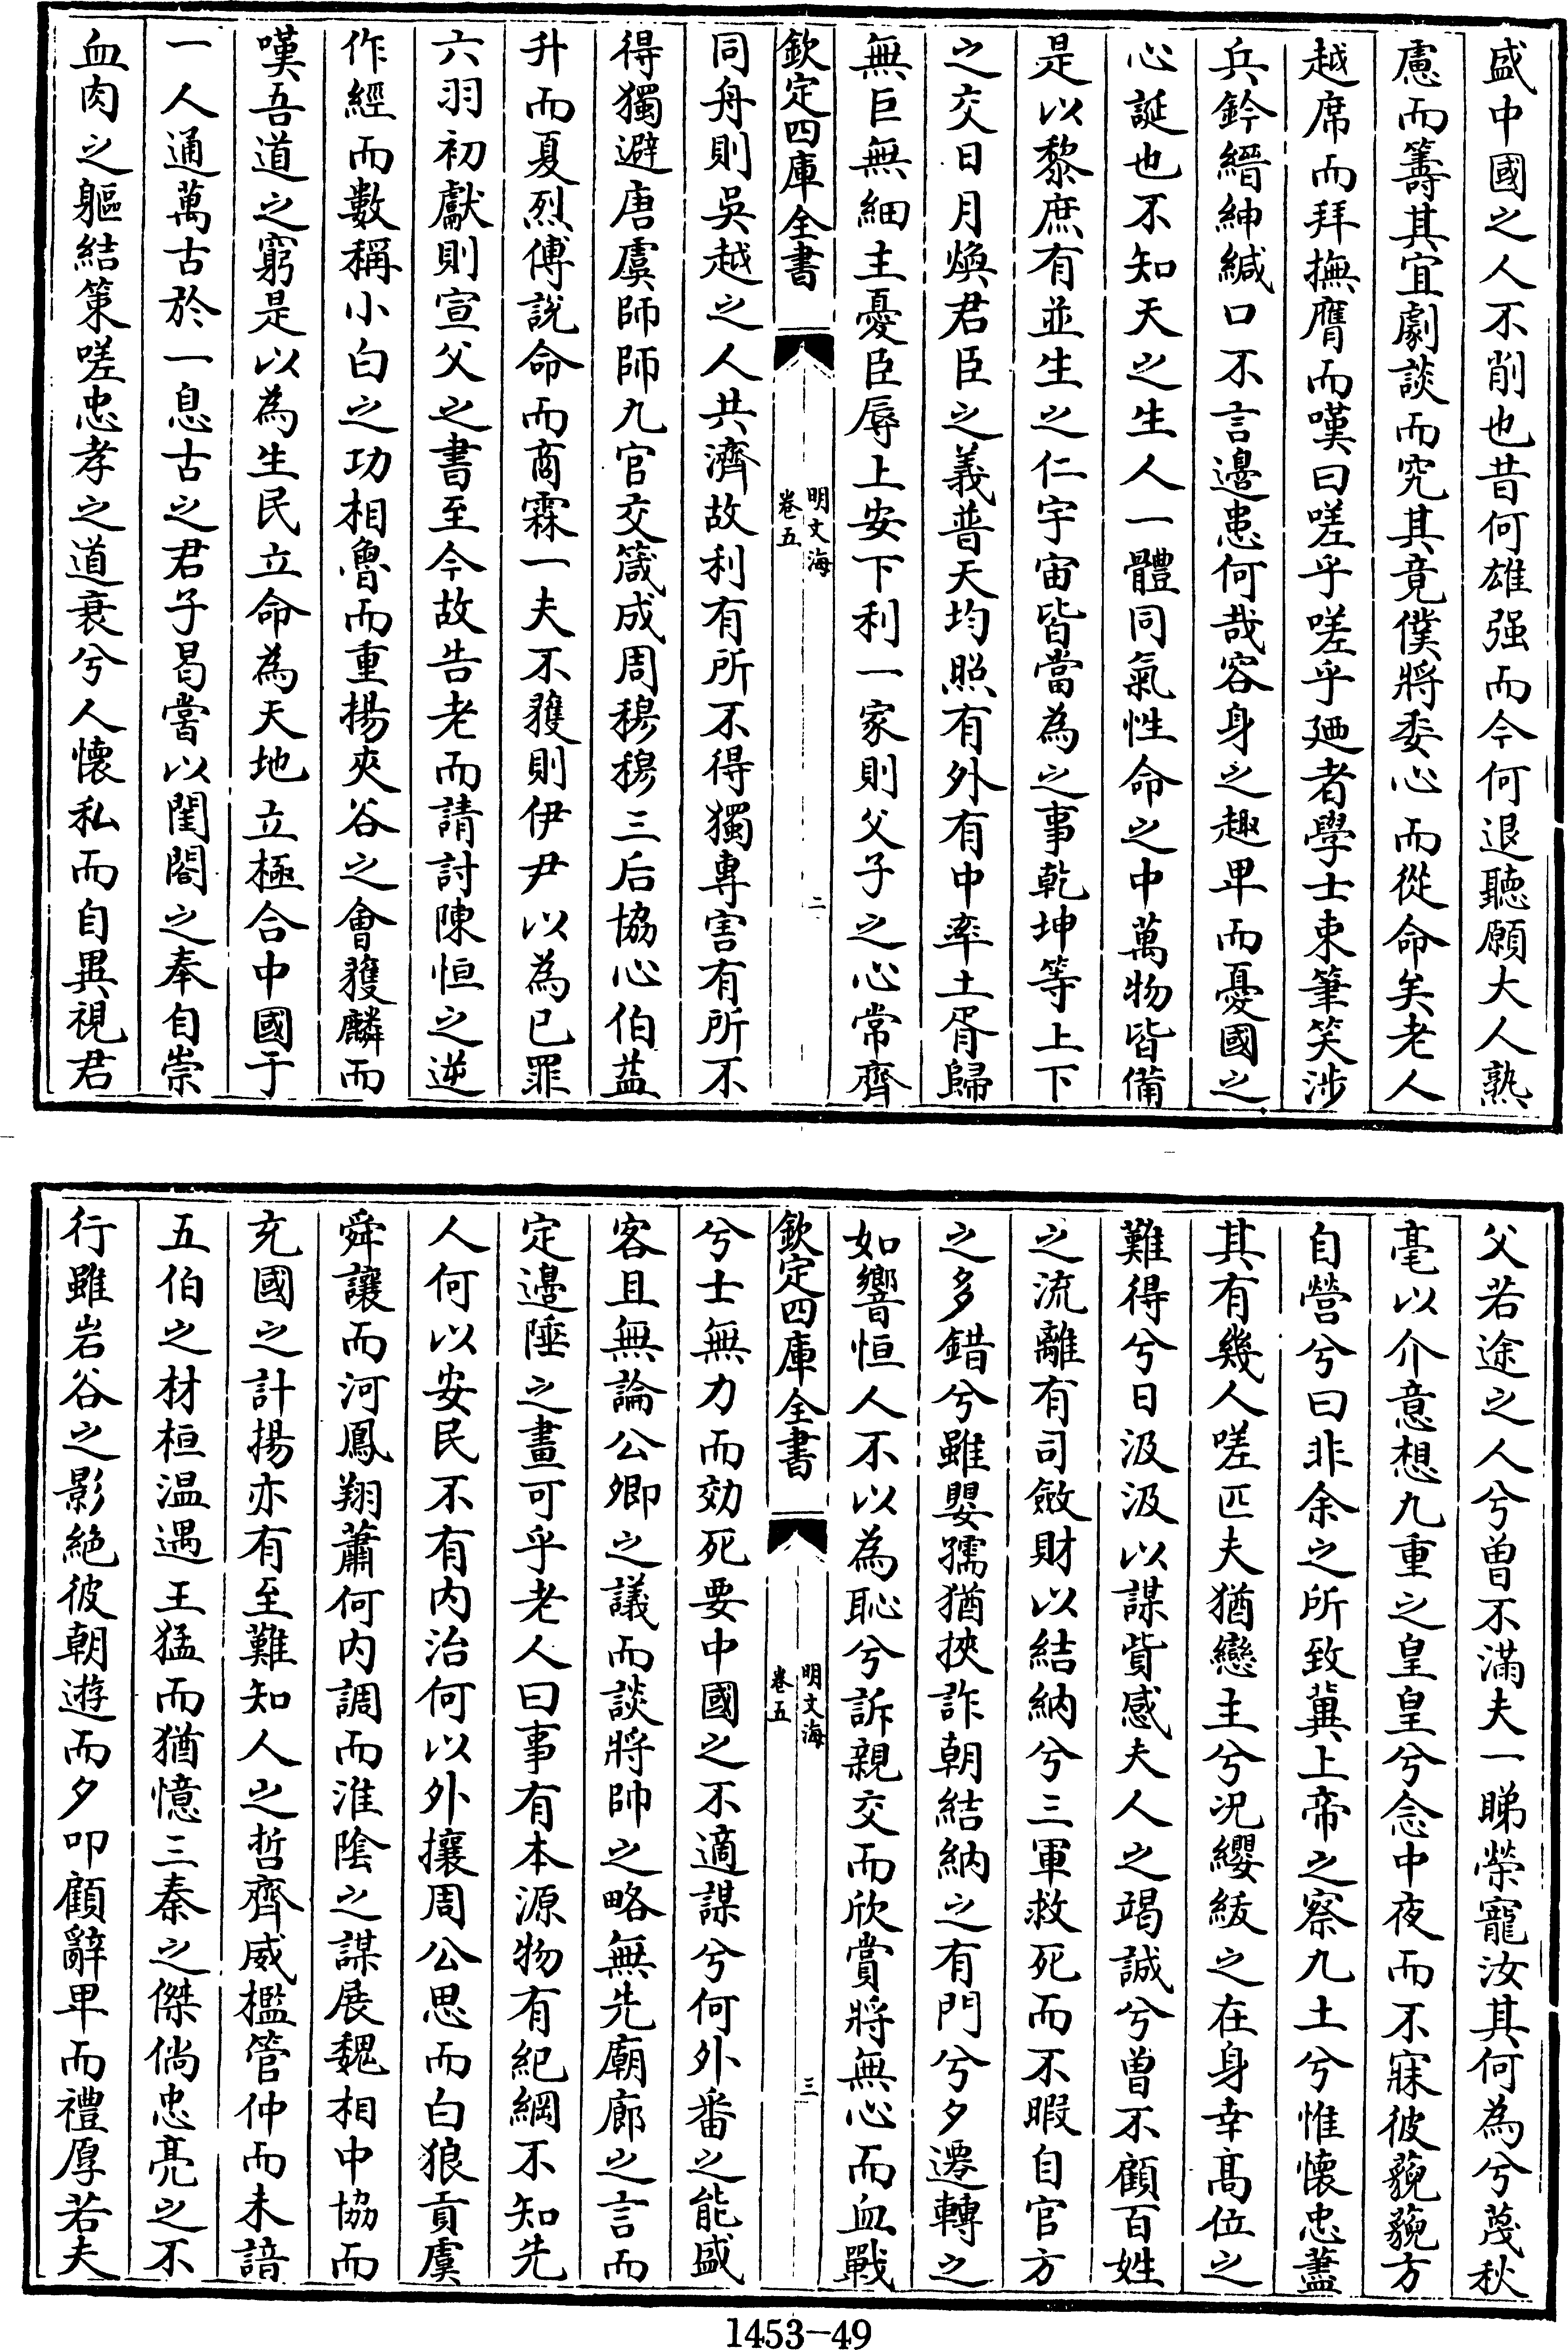 盛中國之人不削也昔何雄强而今何退聽願大人熟
慮而籌其宜劇談而究其竟僕將委心而從命矣老人
越席而拜撫膺而嘆曰嗟乎嗟乎廼者學士束筆笑涉
兵鈐縉紳緘口不言邊患何哉容身之趣卑而憂國之
心誕也不知天之生人一體同氣性命之中萬物皆備
是以黎庶有並生之仁宇宙皆當為之事乾坤等上下
之交日月煥君臣之義普天均照有外有中率土胥歸
無巨無細主憂臣辱上安下利一家則父子之心常齊
欽定四庫全書
明文海
卷五
二
同舟則吳越之人共濟故利有所不得獨專害有所不
得獨避唐虞師師九官交箴成周穆穆三后協心伯益
升而夏烈傅說命而商霖一夫不獲則伊尹以為已罪
六羽初獻則宣父之書至今故告老而請討陳恒之逆
作經而數稱小白之功相魯而重揚夾谷之會獲麟而
嘆吾道之窮是以為生民立命為天地立極合中國于
一人通萬古於一息古之君子曷嘗以閨閤之奉自崇
血肉之軀結策嗟忠孝之道衰兮人懷私而自異視君
父若途之人兮曽不滿夫一睇榮寵汝其何為兮蔑秋
毫以介意想九重之皇皇兮念中夜而不寐彼藐藐方
自營兮曰非余之所致冀上帝之察九土兮惟懷忠藎
其有幾人嗟匹夫猶戀主兮况纓紱之在身幸髙位之
難得兮日汲汲以謀貲感夫人之竭誠兮曽不顧百姓
之流離有司斂財以結納兮三軍救死而不暇自官方
之多錯兮雖嬰孺猶挾詐朝結納之有門兮夕遷轉之
如響恒人不以為恥兮訴親交而欣賞將無心而血戰
欽定四庫全書
明文海
卷五
三
兮士無力而効死要中國之不適謀兮何外番之能盛
客且無論公卿之議而談將帥之略無先廟廊之言而
定邊陲之畫可乎老人曰事有本源物有紀綱不知先
人何以安民不有内治何以外攘周公思而白狼貢虞
舜讓而河鳳翔蕭何内調而淮陰之謀展魏相中協而
充國之計揚亦有至難知人之哲齊威檻管仲而未諳
五伯之材桓温遇王猛而猶憶三秦之傑倘忠亮之不
行雖岩谷之影絶彼朝遊而夕叩顧辭卑而禮厚若夫
1453-49